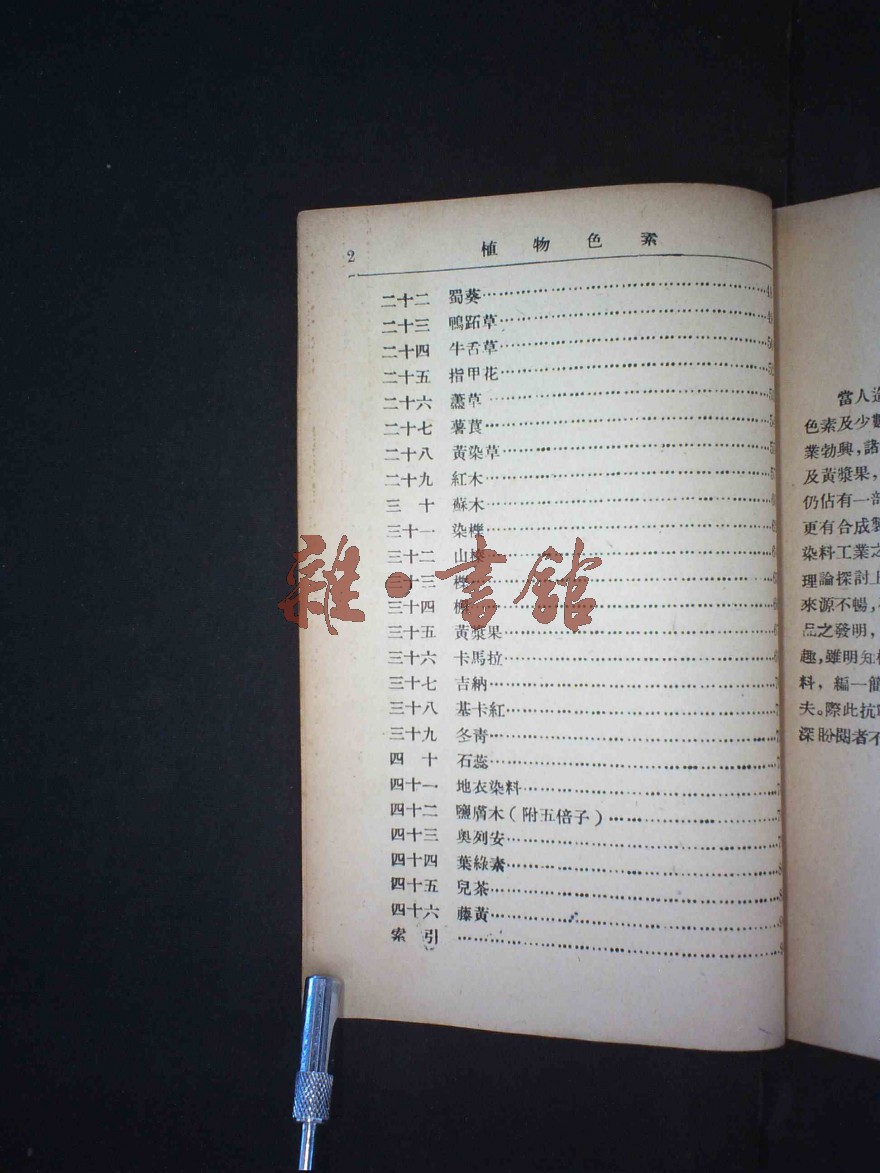 2
植物色素
二十二 蜀葵
二十三 鴨跖草
二十四 牛舌草
二十五 指甲花
二十六 藎草
二十七 薯莨
二十八 黃染草
二十九 紅木
三十 蘇木
三十一 染櫟
三十二 山
三十三
三十四
三十五 黃漿果
三十六 卡馬拉
三十七 吉納
三十八 基卡紅
三十九 冬青
四十 石蕊
四十一 地衣染料
四十二 鹽膚木(附五倍子)
四十三 奧列安
四十四 葉綠素
四十五 兒茶
四十六 藤黃
索引
當人造
色素及少數
業勃興,諸
及黃漿果,
仍佔有一部
更有合成製
染料工業之
理論探討上
來源不暢,
品之發明,
趣,雖明知
料,編一簡
夫。際此抗
深盼閱者不
雜·書館